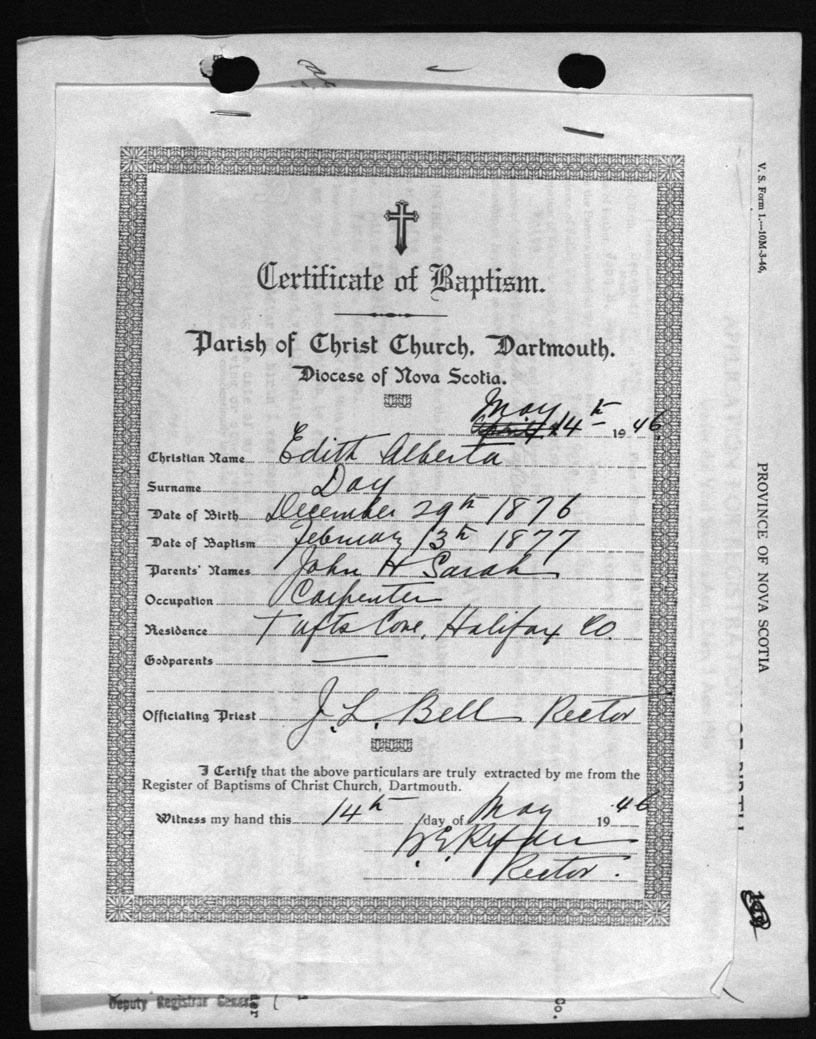 Certificate of Baptism.
Parish of Christ Church, Dartmouth.
Diocese of Nova Scotia.
May
April 14th 1946
Christian Name Edith Alberta
Surname Day
Date of Birth December 29th 1876
Date of Baptism February 13th 1877
Parents' Names John H Sarah
Occupation Carpenter
Residence Tufts Cove, Halifax Co.
Godparents —
Officiating Priest J. L. Bell Rector
I Certify that the above particulars are truly extracted by me from the
Register of Baptisms of Christ Church, Dartmouth.
Witness my hand this 14th day of May 1946
Rector.
V. S. Form 1.—10M-3-46,
PROVINCE OF NOVA SCOTIA
OF BIRTH
Deputy Registrar General
Co.